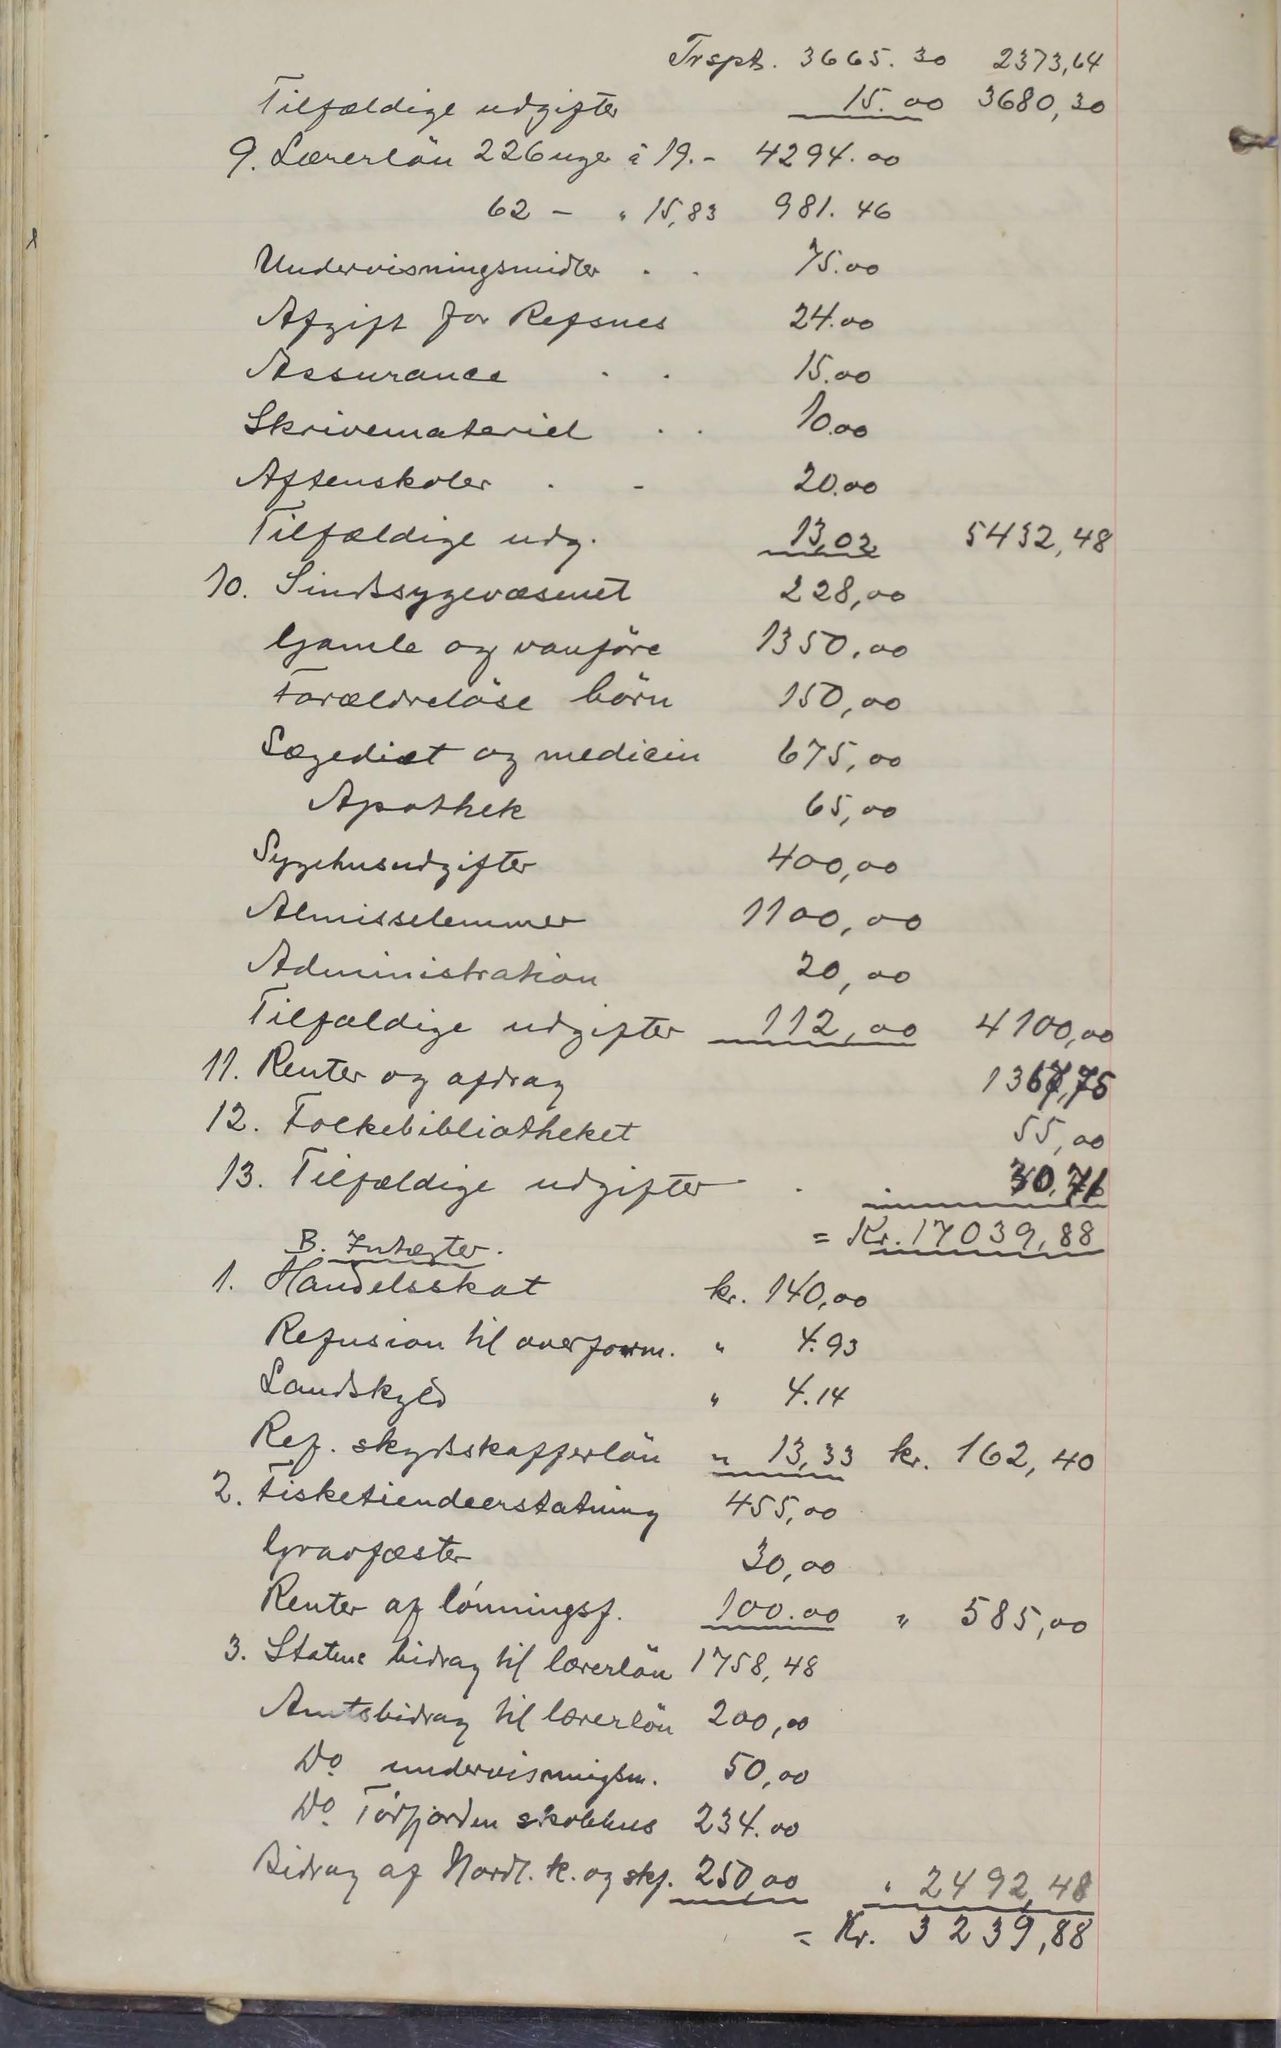 Trspt. 3665.30 2373,64
Tilfældige udgifter 15.00 3680,30
9. Lærerlön 226 uger à 19.- 4294.00
62 - " 15,83 981.46
Undervisningsmidler . . 75.00
Afgift for Refsnes 24.00
Assurance . . 15.00
Skrivemateriel . . 10.00
Aftenskoler . - 20.00
Tilfældige udg. 13,02 5432,48
10. Sindssygevæsenet 228,00
Gamle og vanföre 1350,00
Forældrelöse börn 150,00
Lægediæt og medicin 675,00
Apothek 65,00
Sygehusudgifter 400,00
Almisselemmer 1100,00
Administration 20,00
Tilfældige udgifter 112,00 4100,00
11. Renter og afdrag 1367,75
12. Folkebibliotheket 55,00
13. Tilfældige udgifter . . 30,71
= Kr. 17039,88
B. Indtægter.
1. Handelsskat kr. 140,00
Refusion til overform. " 4.93
Landskyld " 4.14
Ref. skydsskafferlön " 13,33 kr. 162,40
2. Fisketiendeerstatning 455,00
Gravfæster 30,00
Renter af lönningsf. 100.00 " 585,00
3. Statens bidrag til lærerlön 1758,48
Amtsbidrag til lærerlön 200,00
Do. undervisningsm. 50,00
Do. Torfjorden skolehus 234.00
Bidrag af Nordl. k. og skf. 250,00 " 2492,48
= Kr. 3239,88